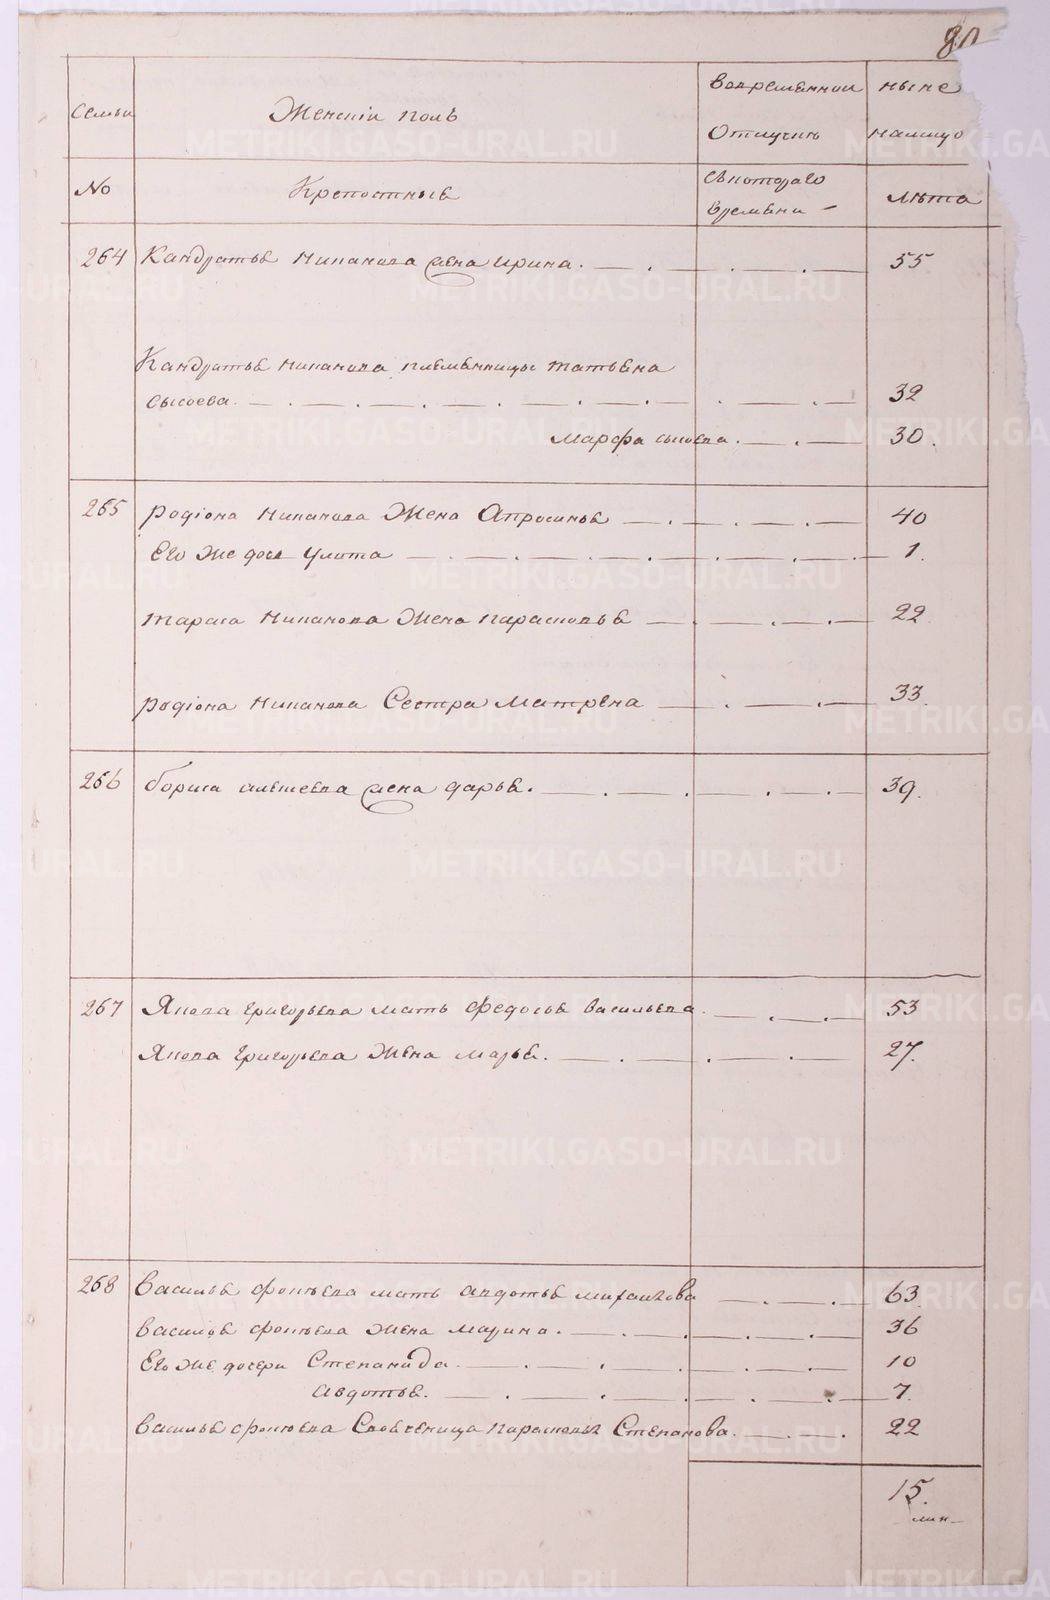 80
Семьи
Женскiй полъ
во временной
отлучке
ныне
налицо
No
Крепостныя
съ котораго
времяни -
лѣта
264 Кандратья Никонова жена Ирина. 55
Кандратья Никонова племянницы Татьяна
Сысоева. 32
Марфа Сысоева. 30.
265 Родiона Никонова жена Апросинья 40
Его же дочь Улита 1.
Тараса Никонова жена Парасковья 22
Родiона Никонова сестра Матрена 33.
266 Бориса жена Дарья. 39.
267 Якова Григорьева мать Федосья Васильева. 53
Якова Григорьева жена Марья. 27.
268 Василья мать Авдотья Михайлова 63
Василья жена Марина. 36
Его же дочери Степанида. 10
Авдотья. 7.
Василья Парасковья Степанова. 22
15.
METRIKI.GASO-URAL.RU